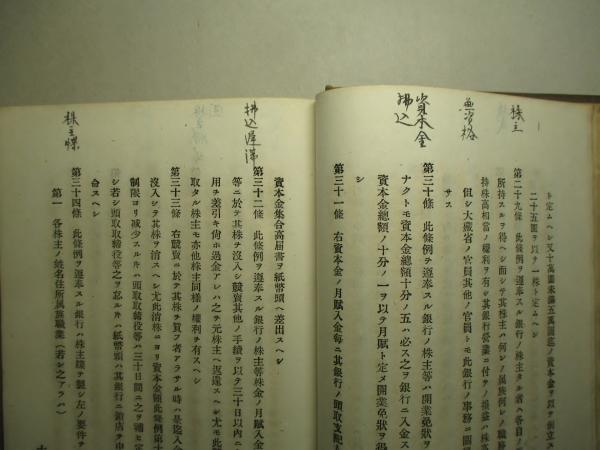 株主
無資格
資本金
拂込
ト定ムヘシ又十萬圓未滿五萬圓迄ノ資本金ヲ以テ創立ス
二十五圓ヲ以テ一株ト定ムヘシ
第二十九條 此條例ヲ遵奉スル銀行ノ株主タル者ハ各自ノ
所持スルヲ得ヘシ而シテ其株主ハ何レノ屬族何レノ職務
持株高相當ノ權利ヲ有シ其銀行營業ニ付テノ損益ハ株高
但シ大藏省ノ官員其他ノ官員トモ此銀行ノ事務ニ關
サス
第三十條 此條例ヲ遵奉スル銀行ノ株主等ハ開業免狀ヲ
ナクトモ資本金總額十分ノ五ハ必ス之ヲ銀行ニ入金ス
資本金總額ノ十分ノ一ヲ以テ月賦ト定メ開業免狀ヲ
シ
第三十一條 右資本金ノ月賦入金每ニ其銀行ノ頭取支配
拂込遲滯
株主牒
資本金集合高屆書ヲ紙幣頭ヘ差出スヘシ
第三十二條 此條例ヲ遵奉スル銀行ノ株主等株金ノ月賦入金
等ニ於テ其株ヲ沒入シ競賣其他ノ手續ヲ以テ三十日以內ニ
用ヲ差引キ尙ホ過金アレハ之ヲ元株主ヘ返還スヘシ尤モ此
取タル株主モ亦他株主同樣ノ權利ヲ有スヘシ
第三十三條 右競賣ニ於テ其株ヲ買フ者アラサル時ハ是迄入金
沒入シテ其株ヲ消スヘシ尤此消株ニヨリ資本金額此條例第
制限ヨリ減少スルキハ頭取取締役等ハ三十日間ニ之ヲ補
シ若シ頭取取締役等之ヲ怠ルキハ紙幣頭ハ其銀行ニ鎖店ヲ
命スヘシ
第三十四條 此條例ヲ遵奉スル銀行ハ株主牒ヲ製シ左ノ要件ヲ
第一 各株主ノ姓名住所屬族職業（若シ之アラハ）